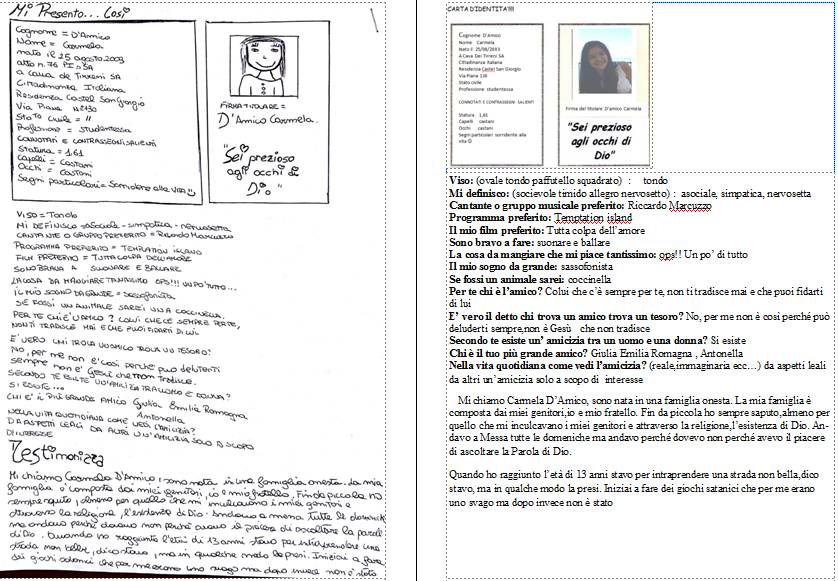 Mi Presento... Così
Cognome = D'Amico
Nome = Carmela
nata il 25 agosto 2003
atto n. 76 PI = SA
a cava de Tirreni SA
Cittadinanza Italiana
Residenza Castel San Giorgio
Via Piana n°130
Stato Civile = //
Professione = studentessa
CONNOTATI E CONTRASSEGNI SALIENTI
Statura = 1,61
Capelli = Castani
Occhi = Castani
Segni particolari = Sorridere alla vita
FIRMA TITOLARE =
D'Amico Carmela.
"Sei prezioso
agli occhi di
Dio"
VISO = Tondo
MI DEFINISCO = asociale - simpatica - nervosetta
CANTANTE O GRUPPO PREFERITO = Riccardo Marcuzzo
PROGRAMMA PREFERITO = TEMPTATION ISLAND
FILM PREFERITO = TUTTA COLPA DELL'AMORE
SONO BRAVA A SUONARE E BALLARE
LA COSA DA MANGIARE TANTISSIMO OPS!!! UN PO' TUTTO...
IL MIO SOGNO DA GRANDE = sassofonista
SE FOSSI UN ANIMALE SAREI UNA COCCINELLA.
PER TE CHI E' L'AMICO? COLUI CHE C'È SEMPRE PER TE,
NON TI TRADISCE MAI E CHE PUOI FIDARTI DI LUI.
E' VERO CHI TROVA UN AMICO TROVA UN TESORO?
No, per me non è così perché può deluderti
sempre non e' Gesù che non tradisce.
SECONDO TE ESISTE UN'AMICIZIA TRA UOMO E DONNA?
SI ESISTE...
CHI E' IL PIÙ GRANDE AMICO Giulia Emilia Romagna
Antonella
NELLA VITA QUOTIDIANA COME VEDI L'AMICIZIA?
DA ASPETTI LEALI DA ALTRI UN'AMICIZIA SOLO A SCOPO
DI INTERESSE
Testimonianza
Mi chiamo Carmela D'Amico, sono nata in una famiglia onesta. La mia
famiglia è composta dai miei genitori, io e mio fratello. Fin da piccola ho
sempre saputo, almeno per quello che mi inculcavano i miei genitori e
attraverso la religione, l'esistenza di Dio. Andavo a messa tutte le domeniche
ma andavo perché dovevo non perché avevo il piacere di ascoltare la parola
di Dio. Quando ho raggiunto l'età di 13 anni stavo per intraprendere una
strada non bella, dico stavo, ma in qualche modo la presi. Iniziai a fare
dei giochi satanici che per me erano uno svago ma dopo invece non è stato
CARTA D'IDENTITA'!!!!
Cognome D'Amico
Nome Carmela
Nato il 25/08/2003
A Cava Dei Tirreni SA
Cittadinanza italiana
Residenza Castel San Giorgio
Via Piana 130
Stato civile
Professione studentessa
CONNOTATI E CONTRASSEGNI SALIENTI
Statura 1,61
Capelli castani
Occhi castani
Segni particolari sorridente alla
vita
Firma del titolare D'amico Carmela
"Sei prezioso
agli occhi di
Dio"
Viso: (ovale tondo paffutello squadrato) : tondo
Mi definisco: (socievole timido allegro nervosetto) : asociale, simpatica, nervosetta
Cantante o gruppo musicale preferito: Riccardo Marcuzzo
Programma preferito: Temptation island
Il mio film preferito: Tutta colpa dell'amore
Sono bravo a fare: suonare e ballare
La cosa da mangiare che mi piace tantissimo: ops!! Un po' di tutto
Il mio sogno da grande: sassofonista
Se fossi un animale sarei: coccinella
Per te chi è l'amico? Colui che c'è sempre per te, non ti tradisce mai e che puoi fidarti
di lui
E' vero il detto chi trova un amico trova un tesoro? No, per me non è cosi perché può
deluderti sempre,non è Gesù che non tradisce
Secondo te esiste un' amicizia tra un uomo e una donna? Si esiste
Chi è il tuo più grande amico? Giulia Emilia Romagna , Antonella
Nella vita quotidiana come vedi l'amicizia? (reale,immaginaria ecc...) da aspetti leali
da altri un'amicizia solo a scopo di interesse
Mi chiamo Carmela D'Amico, sono nata in una famiglia onesta. La mia famiglia è
composta dai miei genitori,io e mio fratello. Fin da piccola ho sempre saputo,almeno per
quello che mi inculcavano i miei genitori e attraverso la religione,l'esistenza di Dio. An-
davo a Messa tutte le domeniche ma andavo perché dovevo non perché avevo il piacere
di ascoltare la Parola di Dio.
Quando ho raggiunto l'età di 13 anni stavo per intraprendere una strada non bella,dico
stavo, ma in qualche modo la presi. Iniziai a fare dei giochi satanici che per me erano
uno svago ma dopo invece non è stato